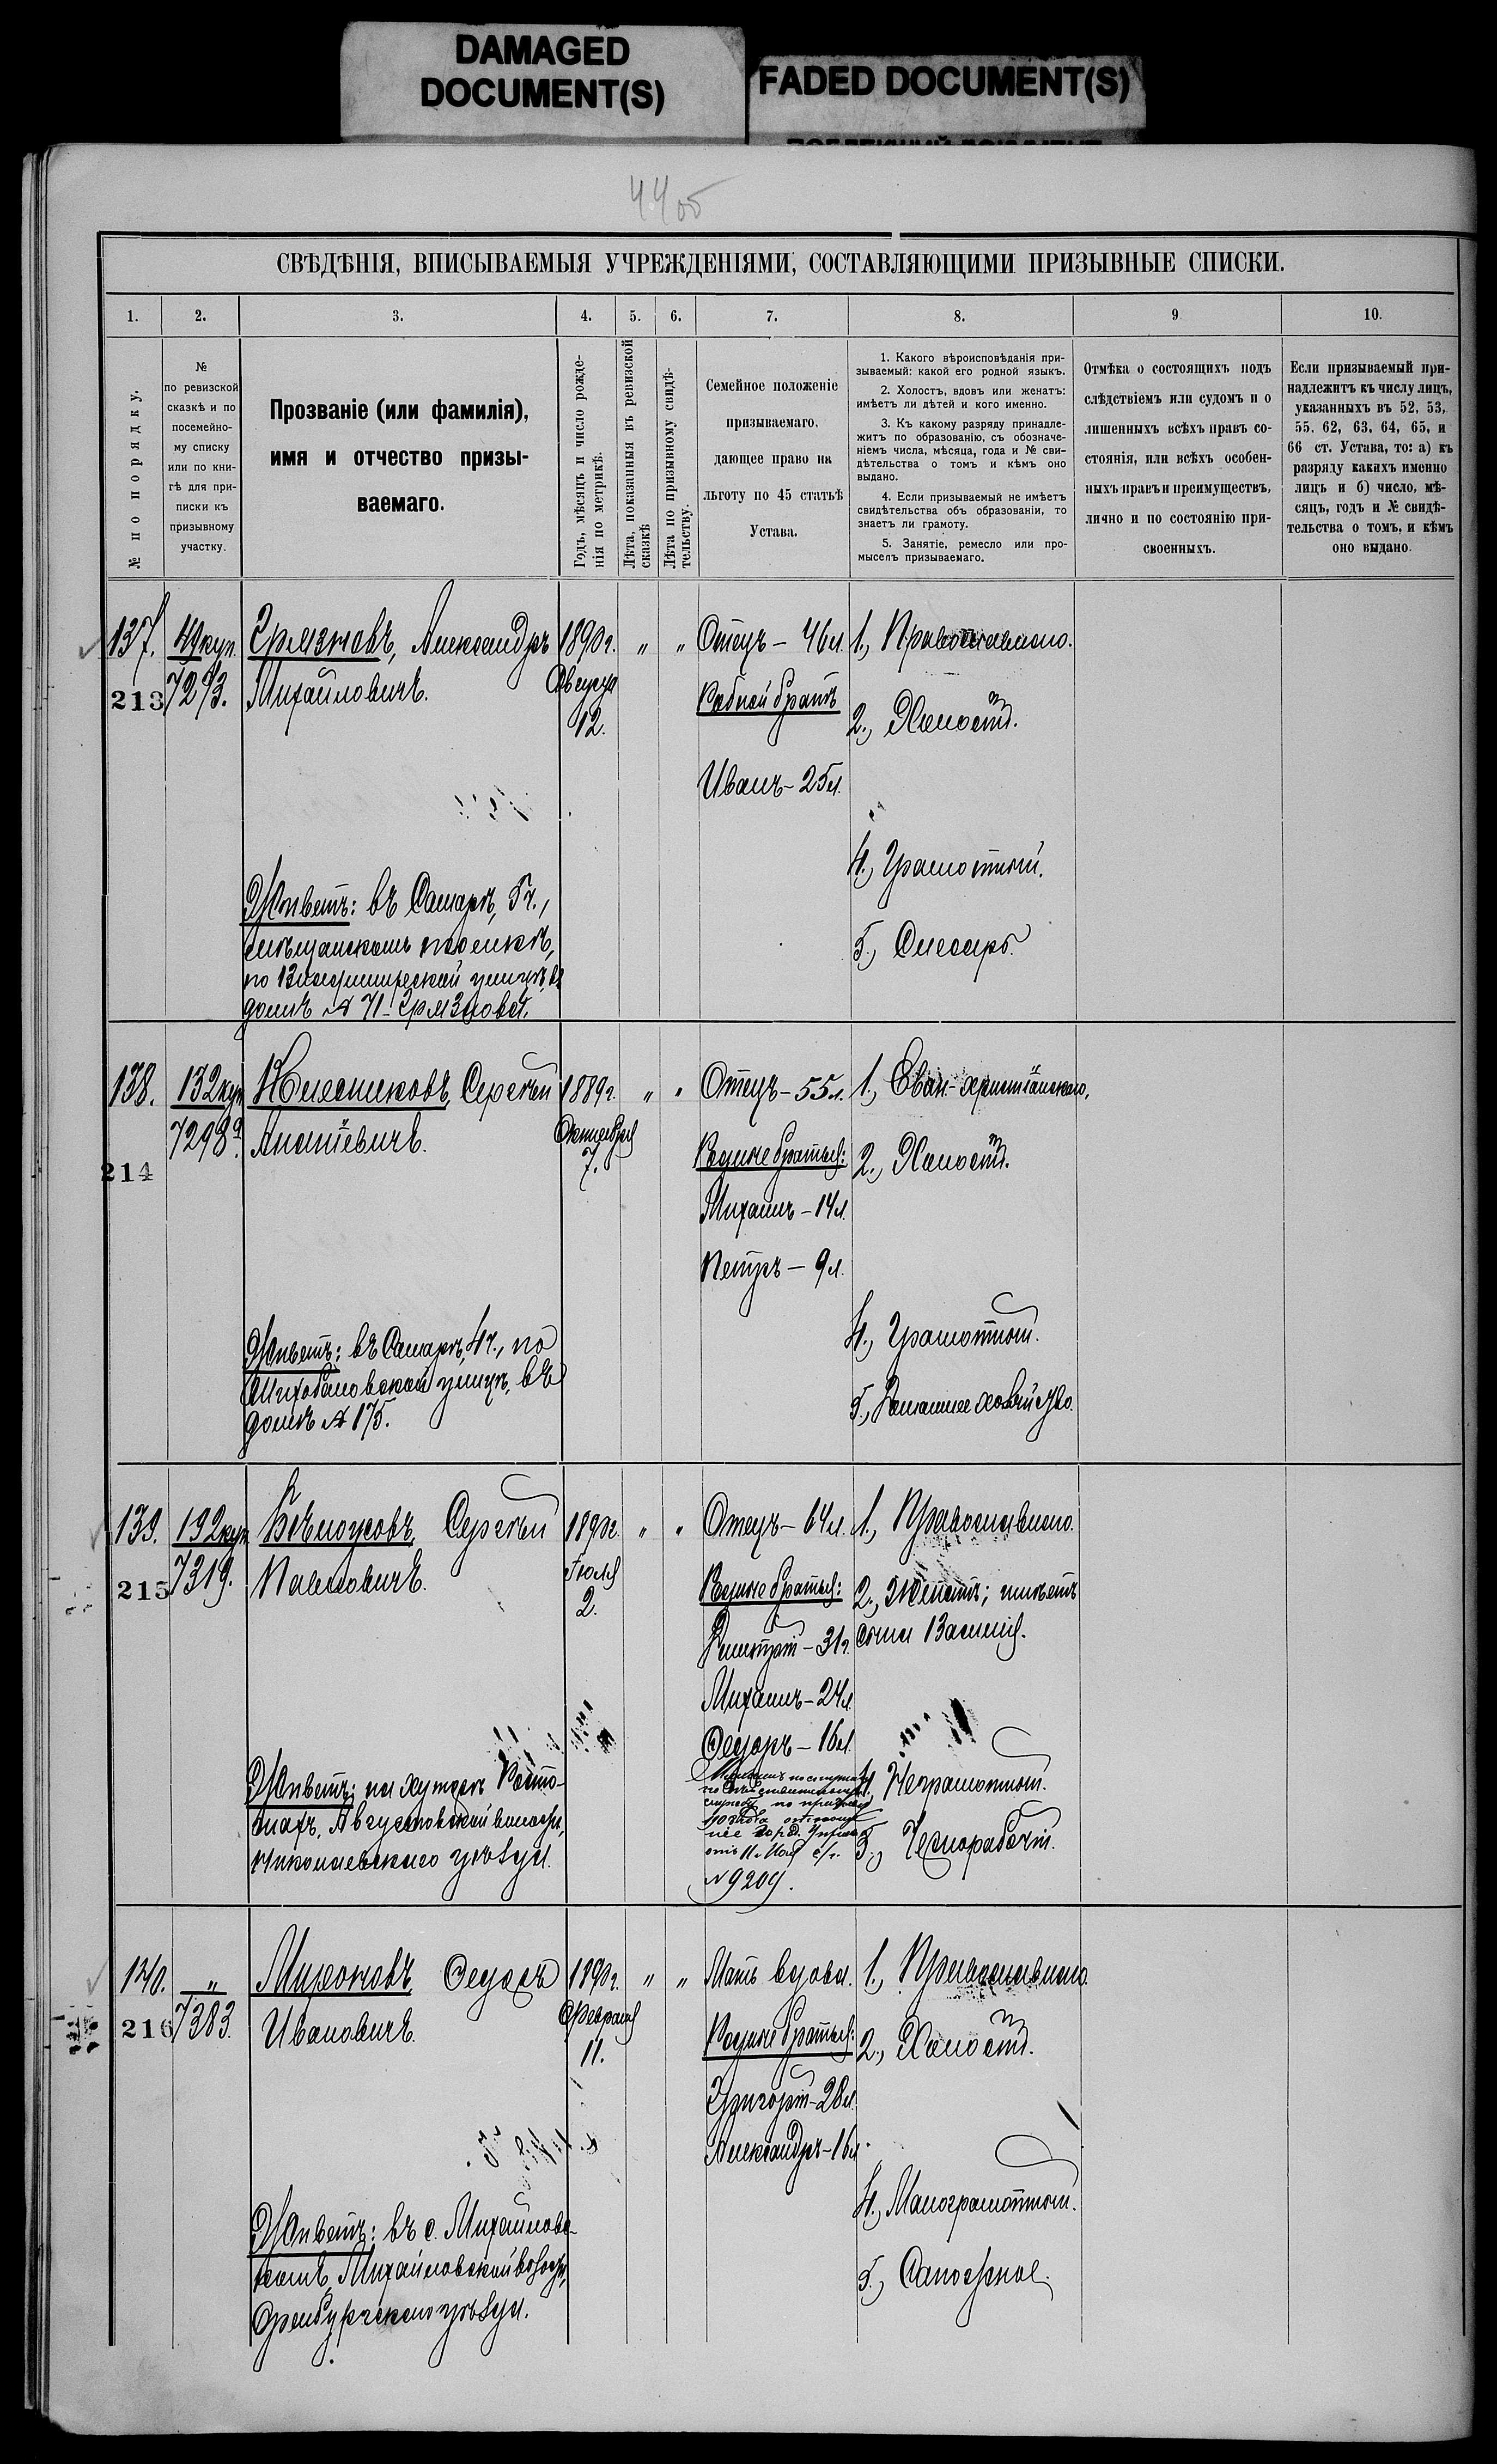 DAMAGED
DOCUMENT(S)
FADED DOCUMENT(S)
44об
СВѢДѢНІЯ, ВПИСЫВАЕМЫЯ УЧРЕЖДЕНІЯМИ, СОСТАВЛЯЮЩИМИ ПРИЗЫВНЫЕ СПИСКИ.
1.
2.
3.
4.
5.
6.
7.
8.
9
10.
№ по порядку.
№
по ревизской
сказкѣ и по
посемейно-
му списку
или по кни-
гѣ для при-
писки къ
призывному
участку.
Прозваніе (или фамилія),
имя и отчество призы-
ваемаго.
Годъ, мѣсяцъ и число рожде-
нія по метрикѣ.
Лѣта, показанныя въ ревизской
сказкѣ
Лѣта по призывному свидѣ-
тельству.
Семейное положеніе
призываемаго,
дающее право на
льготу по 45 статьѣ
Устава.
1. Какого вѣроисповѣданія при-
зываемый: какой его родной языкъ.
2. Холостъ, вдовъ или женатъ:
имѣетъ ли дѣтей и кого именно.
3. Къ какому разряду принадле-
житъ по образованію, съ обозначе-
ніемъ числа, мѣсяца, года и № сви-
дѣтельства о томъ и кѣмъ оно
выдано.
4. Если призываемый не имѣетъ
свидѣтельства объ образованіи, то
знаетъ ли грамоту.
5. Занятіе, ремесло или про-
мыселъ призываемаго.
Отмѣка о состоящихъ подъ
слѣдствіемъ или судомъ и о
лишенныхъ всѣхъ правъ со-
стоянія, или всѣхъ особен-
ныхъ правъ и преимуществъ,
лично и по состоянію при-
своенныхъ.
Если призываемый при-
надлежитъ къ числу лицъ,
указанныхъ въ 52, 53,
55, 62, 63, 64, 65, и
66 ст. Устава, то: а) къ
разряду какихъ именно
лицъ и б) число, мѣ-
сяцъ, годъ и № свидѣ-
тельства о томъ, и кѣмъ
оно выдано.
137.
213
7273.
Александръ
Михайловичъ.
1890г.
Августа
12.
" "
Отецъ – 46л.
Родной братъ
Иванъ – 25л.
1., Православнаго.
2., Холостъ.
4., Грамотный.
5., Слесарь.
Живетъ: въ Самарѣ, 5ч.,
улицѣ, въ
домѣ № 71
138.
214
132
7298
Сергѣй
1889г.
Октября
7.
" "
Отецъ – 55л.
Родные братья:
Михаилъ – 14л.
Петръ – 9л.
1., Еван. христіанскаго,
2., Холостъ.
4., Грамотный.
5., Домашнее хозяйство.
Живетъ: въ Самарѣ, 4ч., по
улицѣ, въ
домѣ № 175.
139.
215
192
7319.
Бѣлоусовъ, Сергѣй
Павловичъ.
1890г.
Іюля
2.
" "
Отецъ – 64л.
Родные братья:
Дмитрій – 31г.
Михаилъ – 24л.
Федоръ – 16л.
№ 9209.
1., Православнаго.
2., Женатъ; имѣетъ
сына Василія.
4., Неграмотный.
5., Чернорабочій.
Живетъ: на хуторѣ
Августовской волости,
Николаевскаго уѣзда.
140.
216
"
7383.
Мироновъ, Федоръ
Ивановичъ.
1890г.
Февраля
11.
" "
Мать вдова.
Родные братья:
Григорій – 28л.
Александръ – 16л.
1., Православнаго.
2., Холостъ.
4., Малограмотный.
5., Сапожное.
Живетъ: въ с. Михайлов-
скомъ, Михайловской волости,
Оренбургскаго уѣзда.